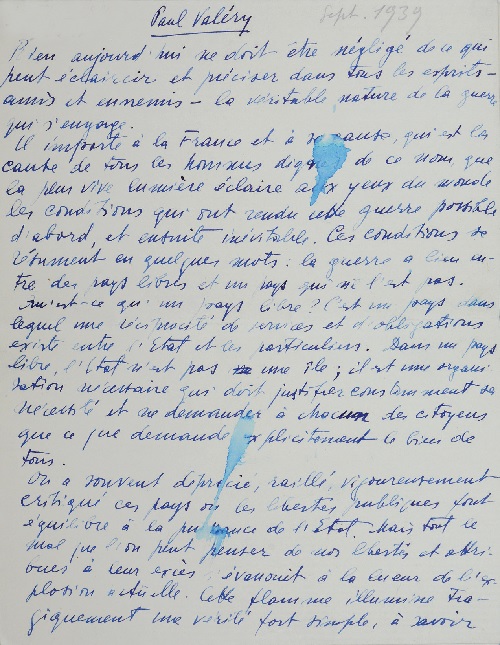 Paul Valéry
Sept. 1939
Rien aujourd'hui ne doit être négligé de ce qui
peut éclaircir et préciser dans tous les esprits –
amis et ennemis – la véritable nature de la guerre
qui s'engage.
Il importe à la France et à sa cause, qui est la
cause de tous les hommes dignes de ce nom, que
la plus vive lumière éclaire aux yeux du monde
les conditions qui ont rendu cette guerre possible
d'abord, et ensuite inévitable. Ces conditions se
résument en quelques mots : la guerre a lieu en-
tre des pays libres et un pays qui ne l'est pas.
Qu'est-ce qu'un pays libre ? C'est un pays dans
lequel une réciprocité de services et d'obligations
existe entre l'État et les particuliers. Dans un pays
libre, l'État n'est pas une ; il est une organi-
sation nécessaire qui doit justifier constamment sa
nécessité et ne demander à chacun des citoyens
que ce que demande explicitement le bien de
tous.
On a souvent déprécié, raillé, vigoureusement
critiqué ces pays où les libertés publiques font
équilibre à la puissance de l'État. Mais tout le
mal que l'on peut penser de nos libertés et attri-
buer à leur excès s'évanouit à la lueur de l'ex-
plosion actuelle. Cette flamme illumine tra-
giquement une vérité fort simple, à savoir